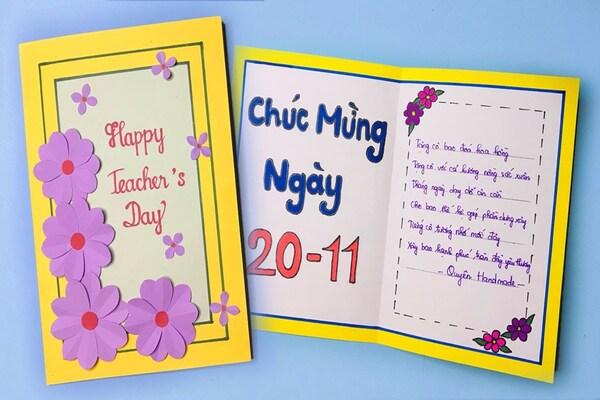 Happy
Teacher's
Day
Chúc Mừng
Ngày
20-11
Tặng cô bao đoá hoa hồng
Tặng cô với cả hương nồng sắc xuân
Tháng ngày dạy dỗ ân cần
Cho bao thế hệ góp phần dựng xây
Xây bao hạnh phúc tràn đầy yêu thương
- Quyên Handmade -